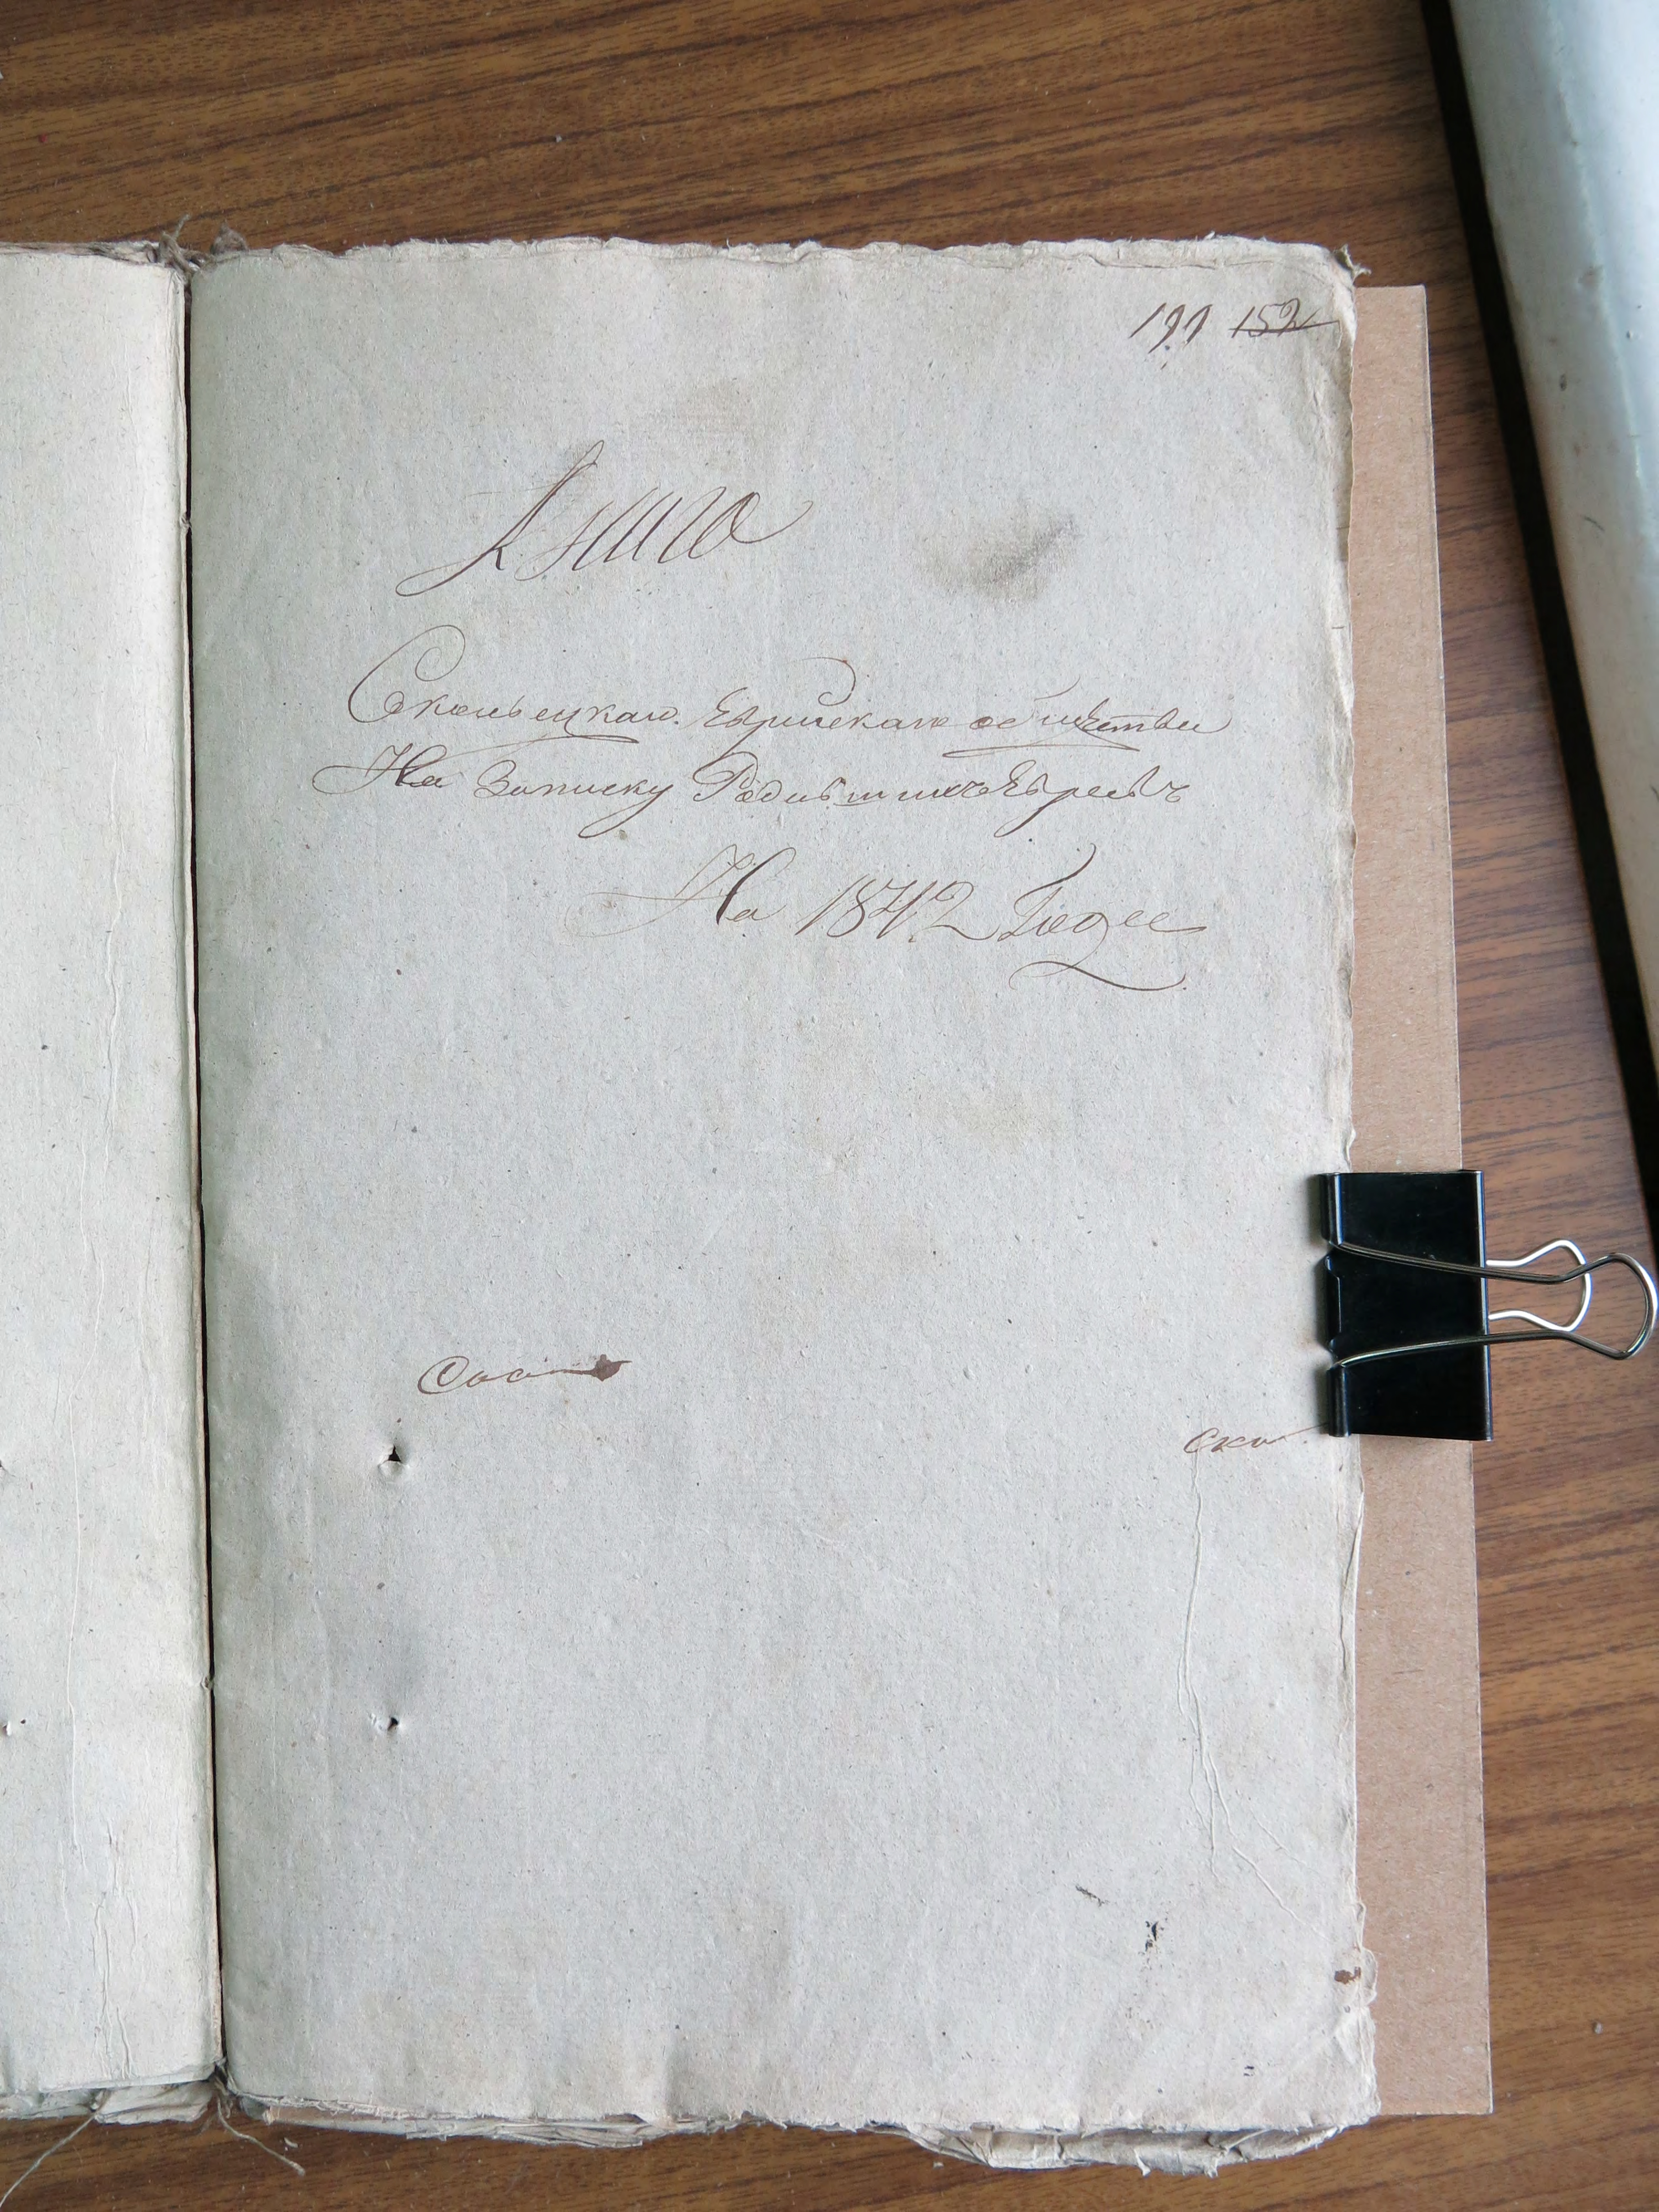 191 152
Книга
Сконьецкаго Еврискаго общества
На Записку Родившихъ Евреевъ
На 1842 Годъ
Соо
ско